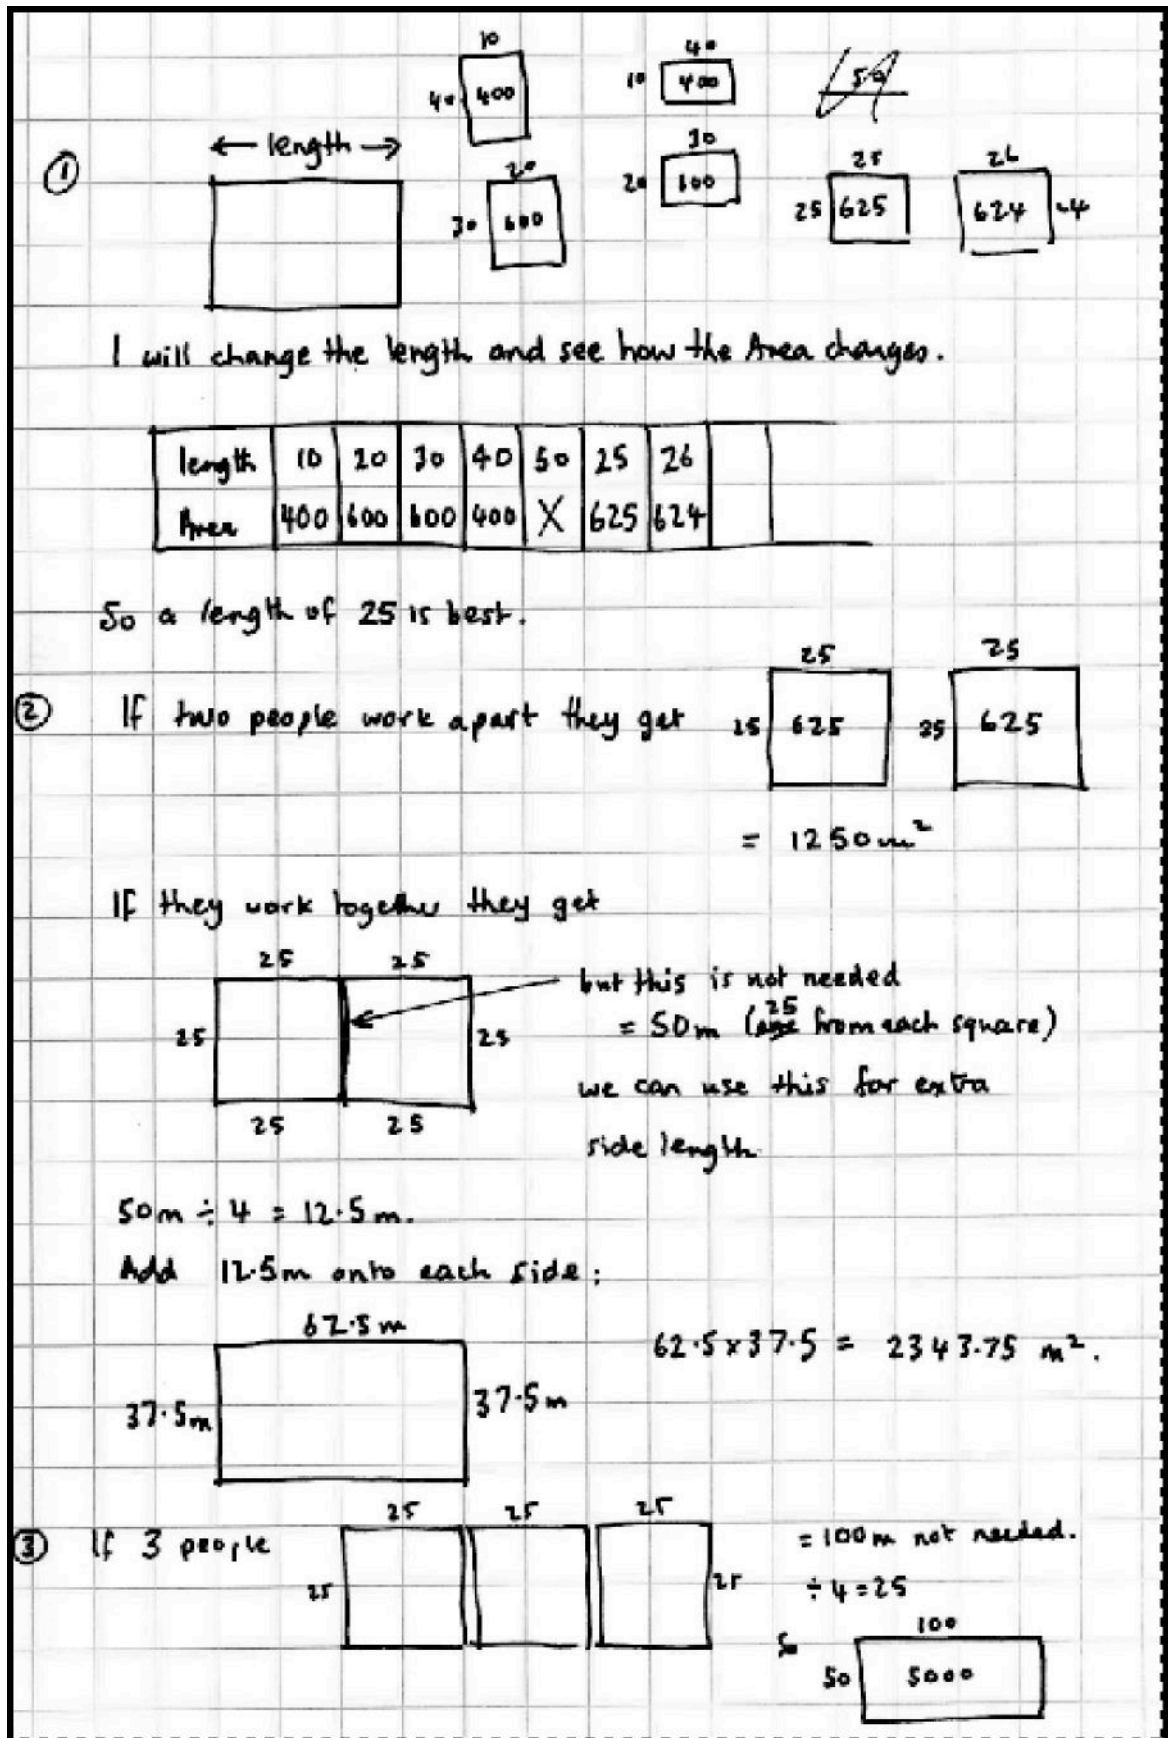 10
40 400
40
10 400
50
①
← length →
20
30 600
30
20 600
25
25 625
26
624 24
I will change the length and see how the Area changes.
length 10 20 30 40 50 25 26
Area 400 600 600 400 X 625 624
So a length of 25 is best.
② If two people work apart they get
25
25 625
25
25 625
= 1250 m²
If they work together they get
25 25
25 25
25 25
but this is not needed
= 50m (25 from each square)
we can use this for extra
side length.
50m ÷ 4 = 12.5m.
Add 12.5m onto each side:
62.5m
37.5m 37.5m
62.5 x 37.5 = 2343.75 m².
③ If 3 people
25 25 25
25 25
= 100m not needed.
÷ 4 = 25
So
100
50 5000